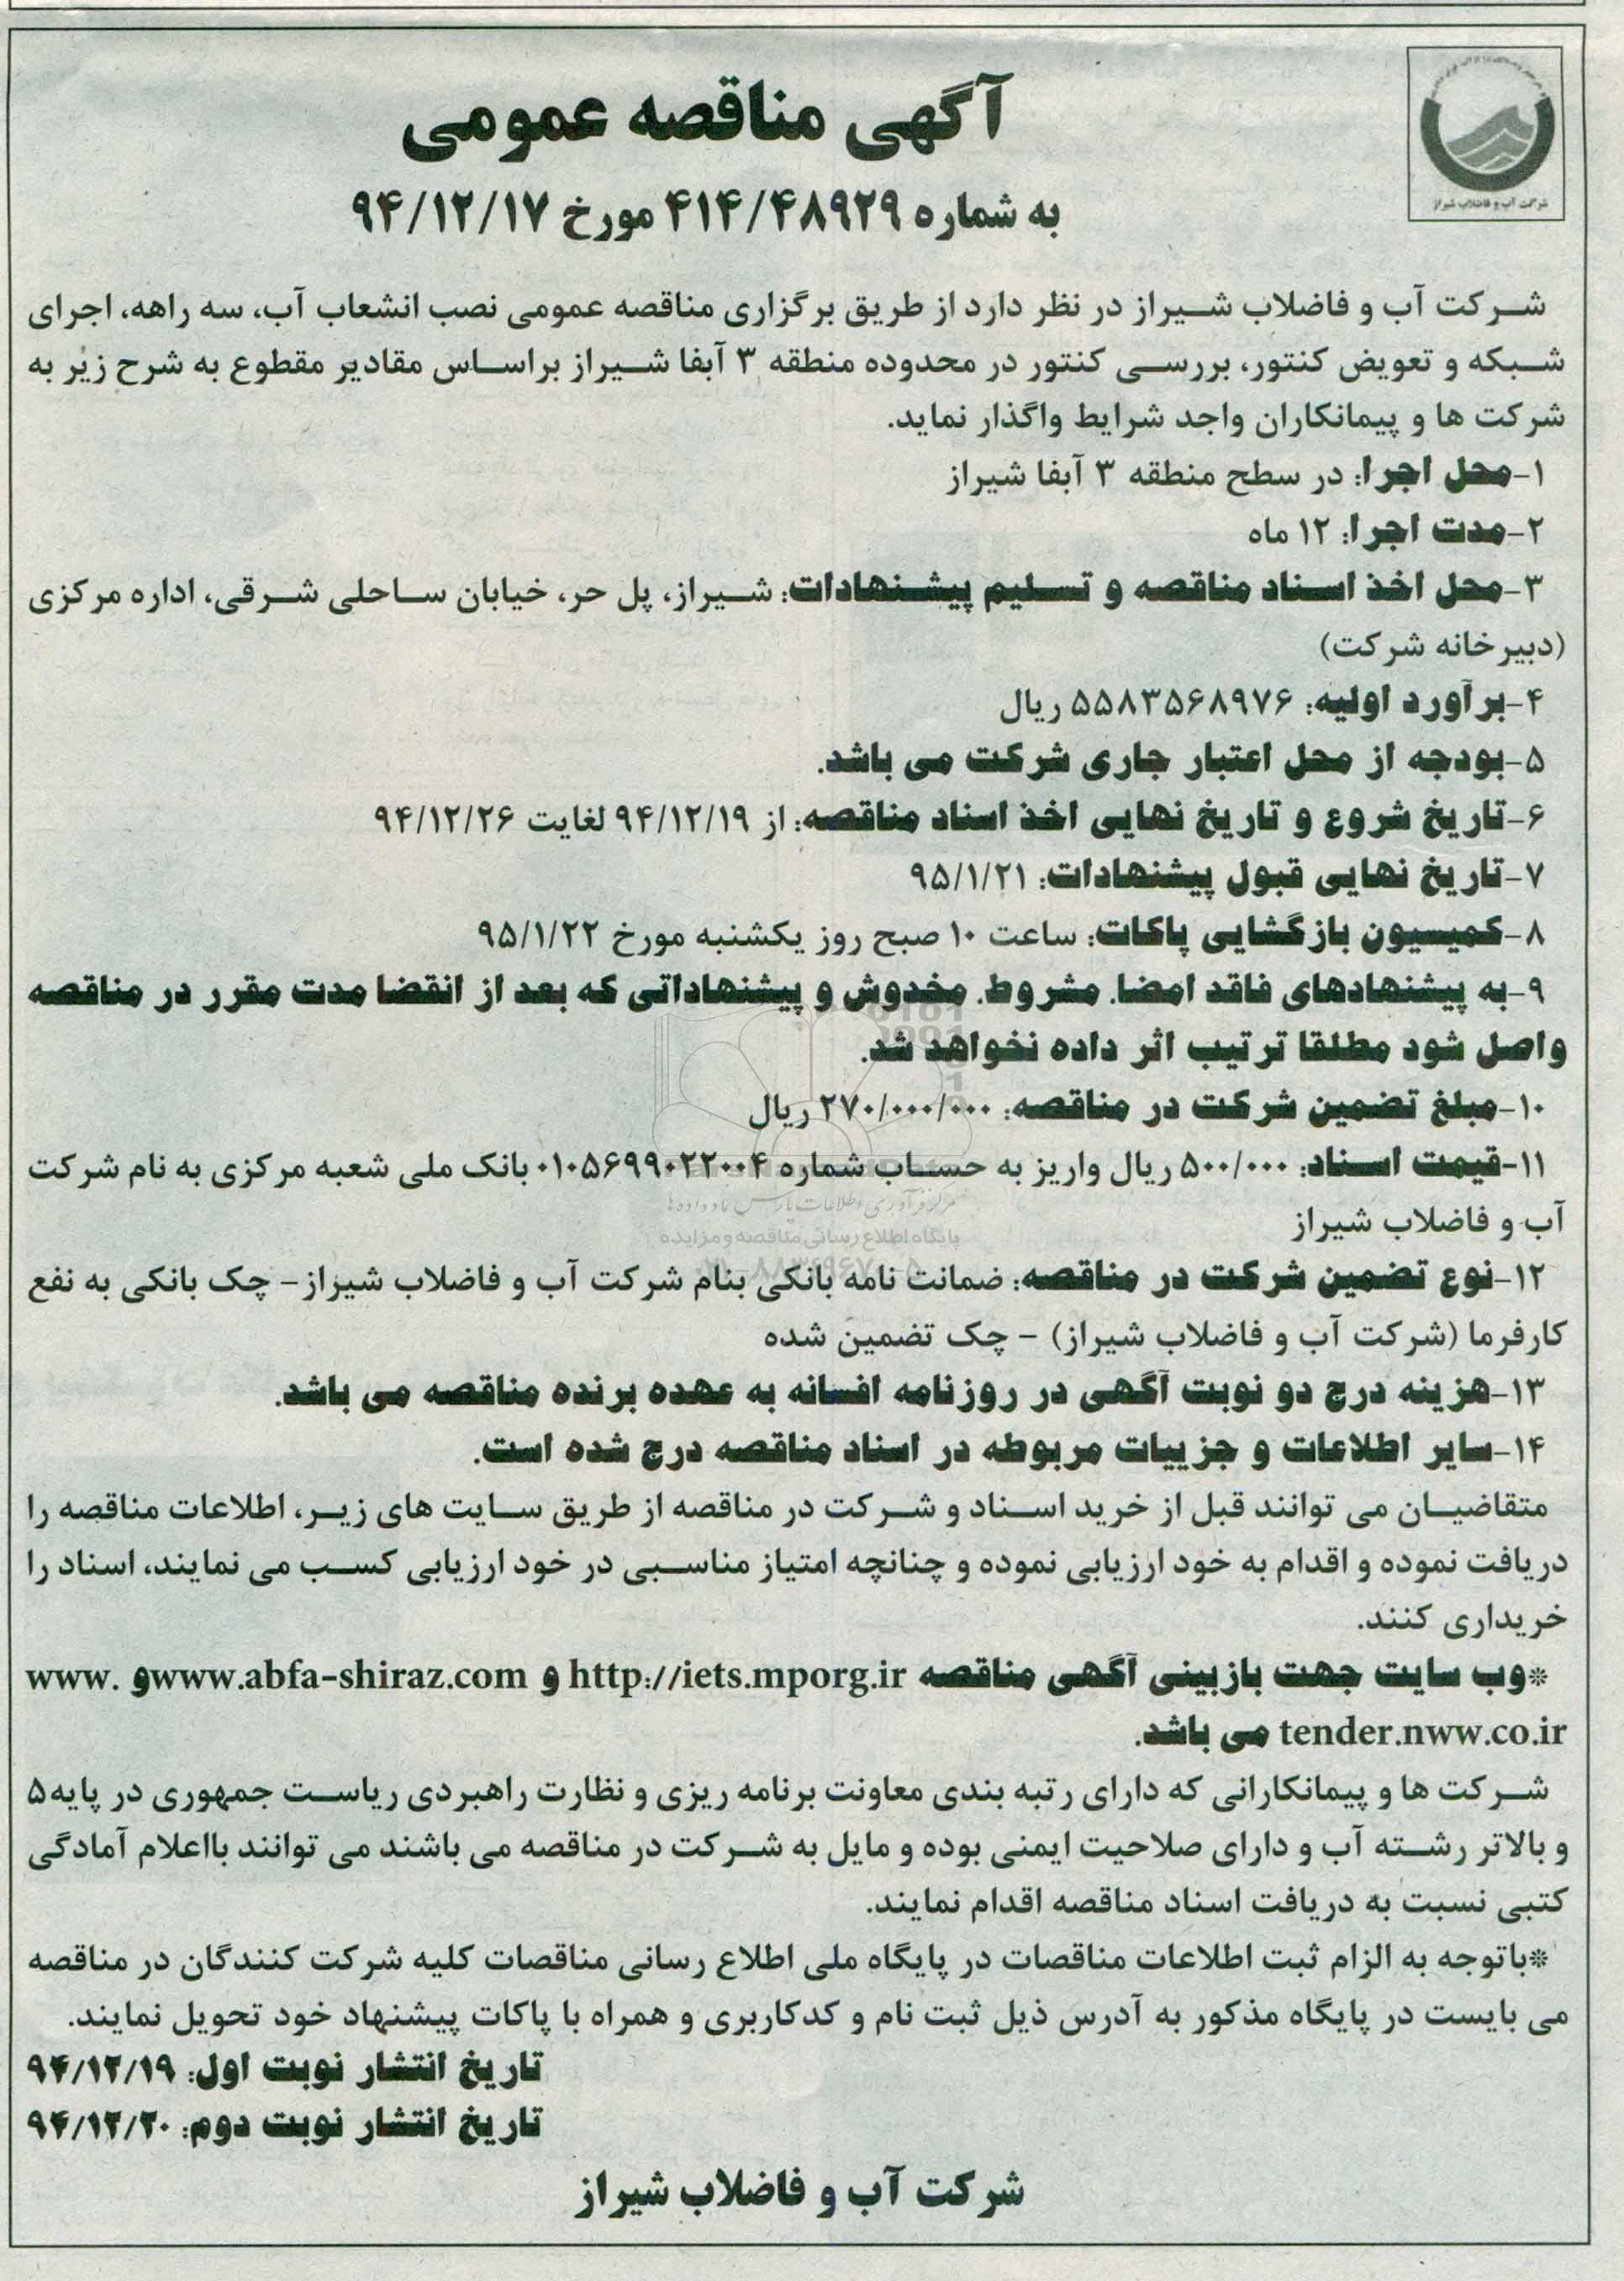 شرکت آب و فاضلاب شیراز
آگهی مناقصه عمومی
به شماره ۴۱۴/۴۸۹۲۹ مورخ ۹۴/۱۲/۱۷
شرکت آب و فاضلاب شیراز در نظر دارد از طریق برگزاری مناقصه عمومی نصب انشعاب آب، سه راهه، اجرای
شبکه و تعویض کنتور، بررسی کنتور در محدوده منطقه ۳ آبفا شیراز براساس مقادیر مقطوع به شرح زیر به
شرکت ها و پیمانکاران واجد شرایط واگذار نماید.
۱-محل اجرا: در سطح منطقه ۳ آبفا شیراز
۲-مدت اجرا: ۱۲ ماه
۳-محل اخذ اسناد مناقصه و تسلیم پیشنهادات: شیراز، پل حر، خیابان ساحلی شرقی، اداره مرکزی
(دبیرخانه شرکت)
۴-برآورد اولیه: ۵۵۸۳۵۶۸۹۷۶ ریال
۵-بودجه از محل اعتبار جاری شرکت می باشد.
۶-تاریخ شروع و تاریخ نهایی اخذ اسناد مناقصه: از ۹۴/۱۲/۱۹ لغایت ۹۴/۱۲/۲۶
۷-تاریخ نهایی قبول پیشنهادات: ۹۵/۱/۲۱
۸-کمیسیون بازگشایی پاکات: ساعت ۱۰ صبح روز یکشنبه مورخ ۹۵/۱/۲۲
۹-به پیشنهادهای فاقد امضا، مشروط، مخدوش و پیشنهاداتی که بعد از انقضا مدت مقرر در مناقصه
واصل شود مطلقا ترتیب اثر داده نخواهد شد.
۱۰-مبلغ تضمین شرکت در مناقصه: ۲۷۰/۰۰۰/۰۰۰ ریال
۱۱-قیمت اسناد: ۵۰۰/۰۰۰ ریال واریز به حساب شماره ۰۱۰۵۶۹۹۰۲۲۰۰۴ بانک ملی شعبه مرکزی به نام شرکت
آب و فاضلاب شیراز
مرکز فرآوری اطلاعات پارس نماد داده ها
پایگاه اطلاع رسانی مناقصه و مزایده
۱۲-نوع تضمین شرکت در مناقصه: ضمانت نامه بانکی بنام شرکت آب و فاضلاب شیراز- چک بانکی به نفع
کارفرما (شرکت آب و فاضلاب شیراز) - چک تضمین شده
۱۳-هزینه درج دو نوبت آگهی در روزنامه افسانه به عهده برنده مناقصه می باشد.
۱۴-سایر اطلاعات و جزییات مربوطه در اسناد مناقصه درج شده است.
متقاضیان می توانند قبل از خرید اسناد و شرکت در مناقصه از طریق سایت های زیر، اطلاعات مناقصه را
دریافت نموده و اقدام به خود ارزیابی نموده و چنانچه امتیاز مناسبی در خود ارزیابی کسب می نمایند، اسناد را
خریداری کنند.
*وب سایت جهت بازبینی آگهی مناقصه http://iets.mporg.ir و www.abfa-shiraz.comو www.
tender.nww.co.ir می باشد.
شرکت ها و پیمانکارانی که دارای رتبه بندی معاونت برنامه ریزی و نظارت راهبردی ریاست جمهوری در پایه۵
و بالاتر رشته آب و دارای صلاحیت ایمنی بوده و مایل به شرکت در مناقصه می باشند می توانند بااعلام آمادگی
کتبی نسبت به دریافت اسناد مناقصه اقدام نمایند.
*باتوجه به الزام ثبت اطلاعات مناقصات در پایگاه ملی اطلاع رسانی مناقصات کلیه شرکت کنندگان در مناقصه
می بایست در پایگاه مذکور به آدرس ذیل ثبت نام و کدکاربری و همراه با پاکات پیشنهاد خود تحویل نمایند.
تاریخ انتشار نوبت اول: ۹۴/۱۲/۱۹
تاریخ انتشار نوبت دوم: ۹۴/۱۲/۲۰
شرکت آب و فاضلاب شیراز